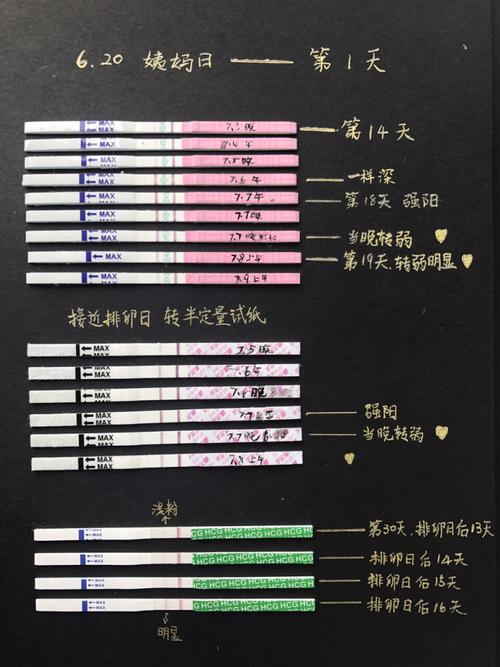 6.20 姨妈日 —— 第1天
MAX 7.3晚 第14天
MAX 7.4午
MAX 7.5晚
MAX 7.6午 一样深
MAX 7.7午 第18天 强阳
MAX
MAX 当晚转弱
MAX 7.8上午 第19天.转弱明显
MAX 7.9上午
接近排卵日 转半定量试纸
MAX 7.5晚
MAX 7.6午
MAX 7.6晚
MAX 7.7午 强阳
MAX 7.7晚 当晚转弱
MAX 7.8上午
浅粉
MAX HCG HCG HCG HCG 第30天.排卵日后13天
MAX HCG HCG HCG HCG 排卵日后14天
MAX HCG HCG HCG HCG 排卵日后15天
MAX HCG HCG HCG HCG 排卵日后16天
明显